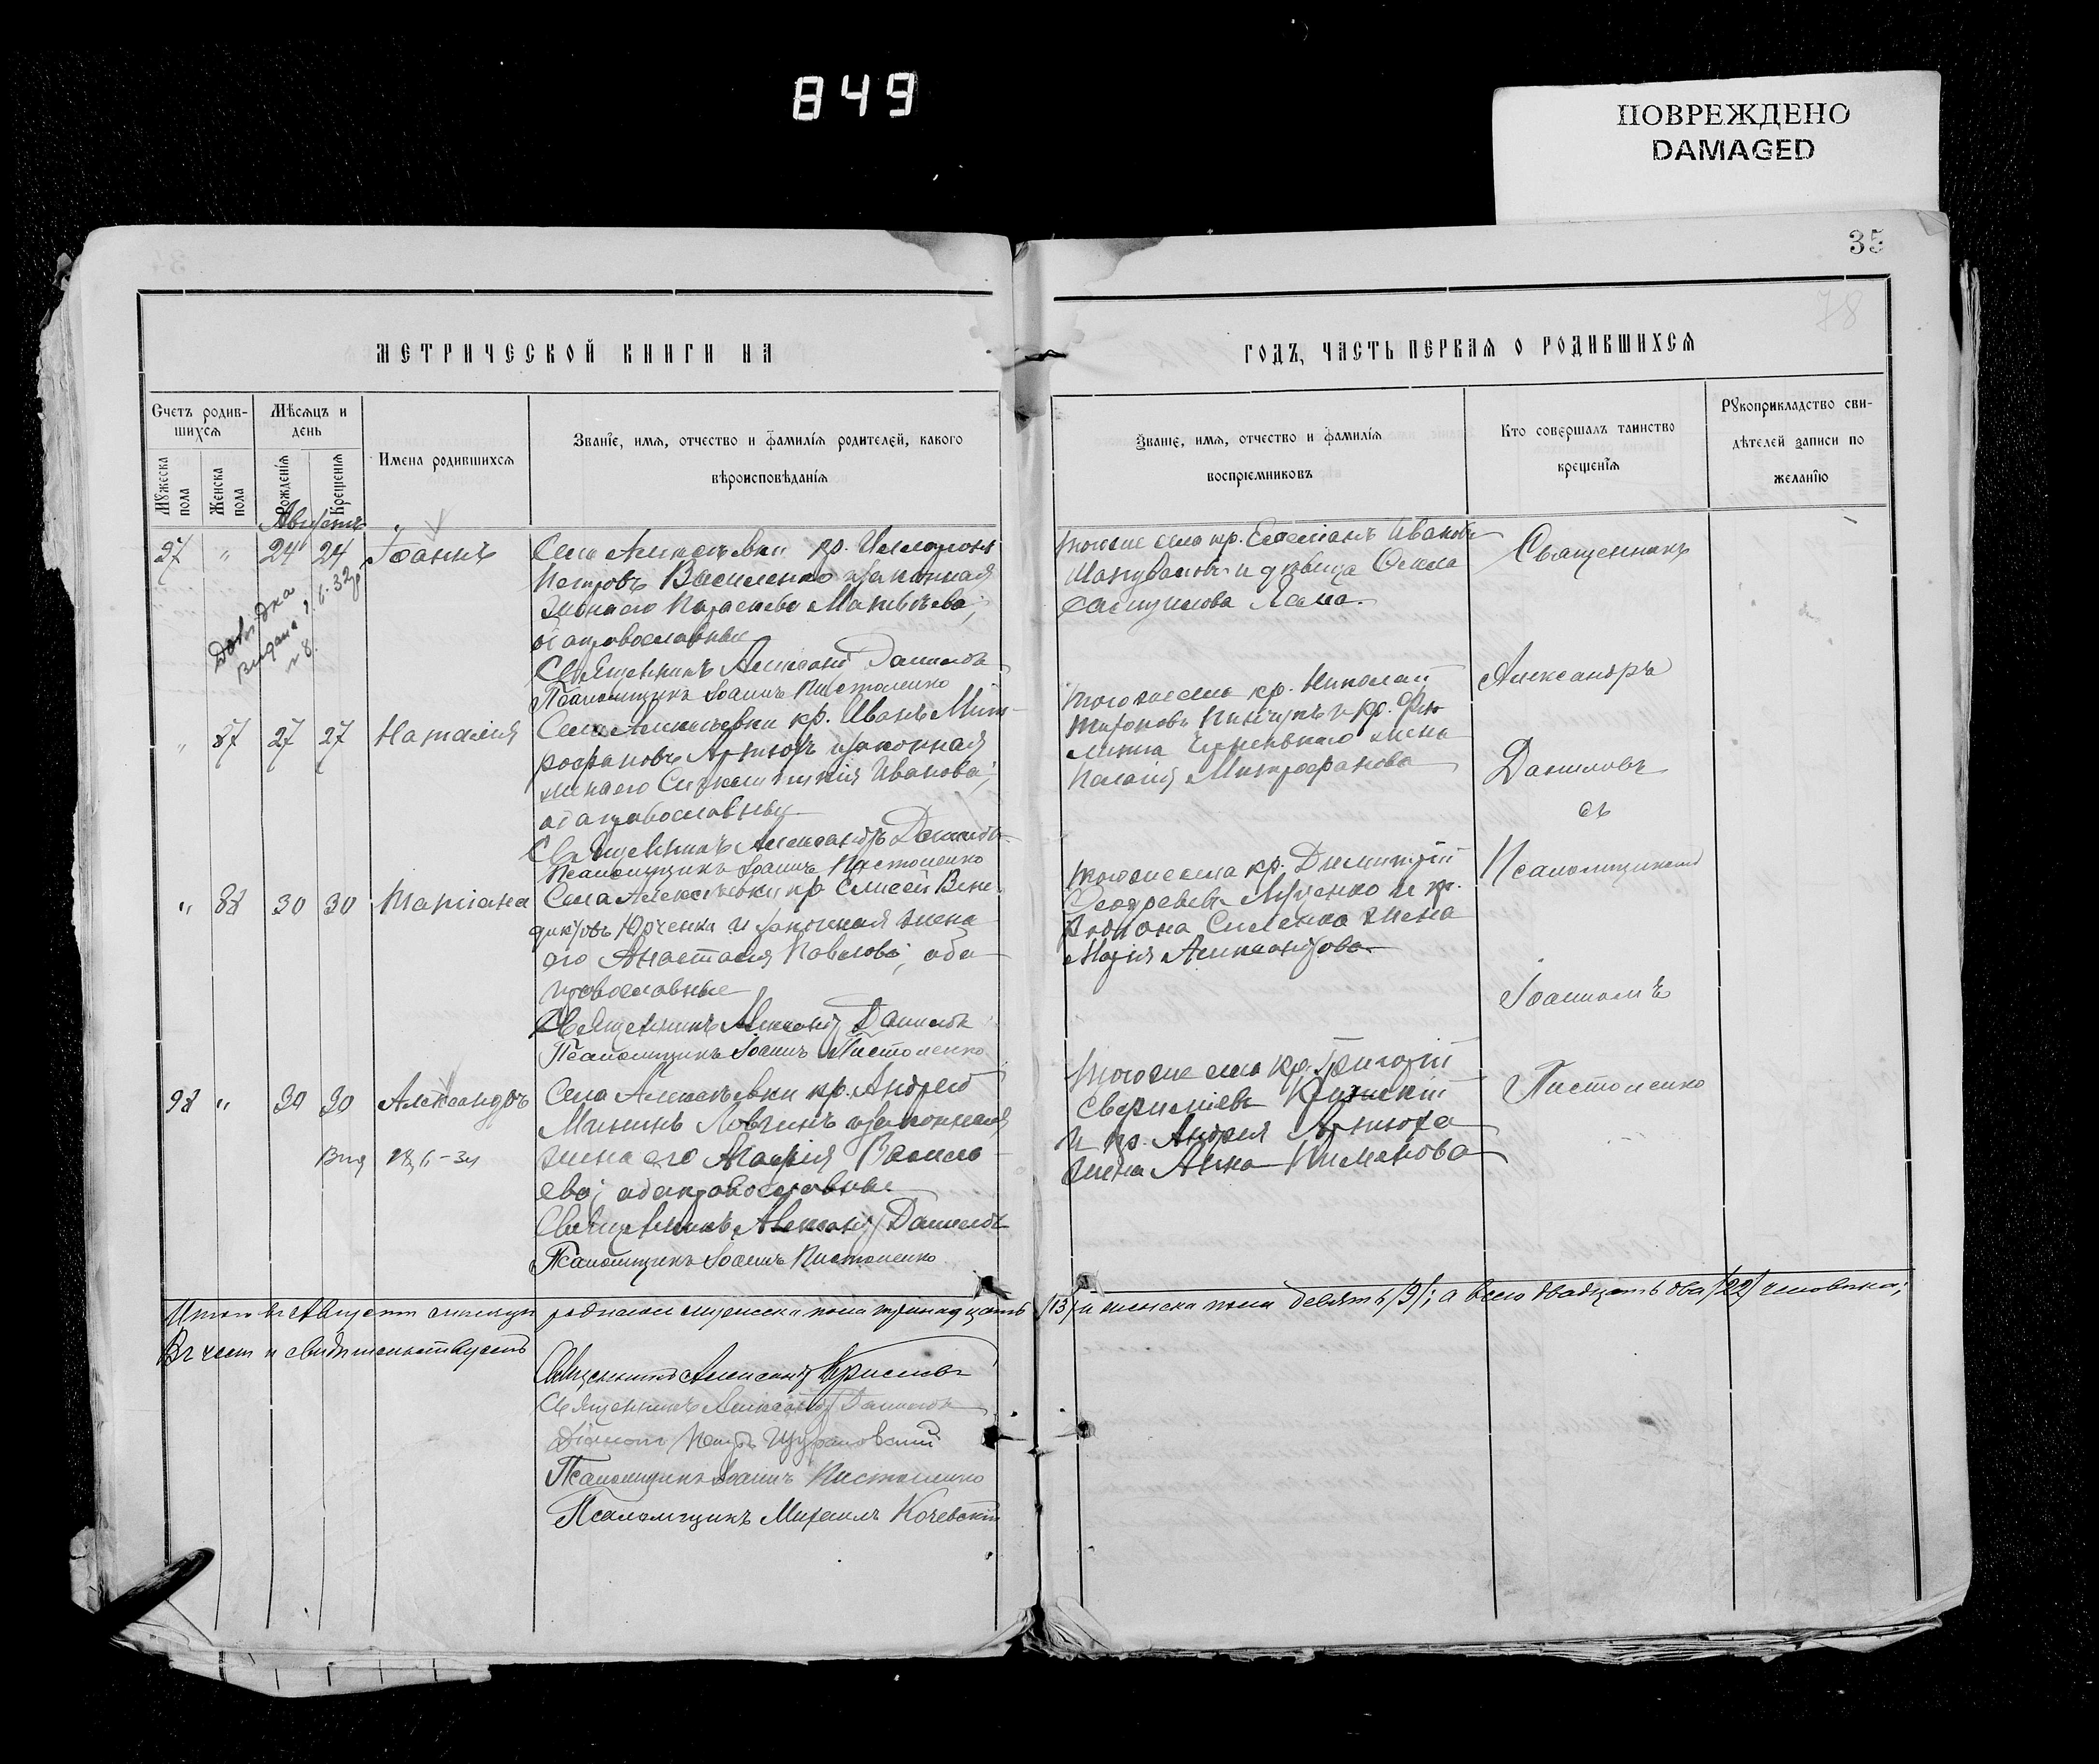 849
ПОВРЕЖДЕНО
DAMAGED
35
78
МЕТРИЧЕСКОЙ КНИГИ НА
ГОДЪ, ЧАСТЬ ПЕРВАЯ О РОДИВШИХСЯ
Счетъ родив-
шихся
Мужеска
пола
Женска
пола
Мѣсяцъ и
день
Рожденія
Крещенія
Имена родившихся
Званіе, имя, отчество и фамилія родителей, какого
вѣроисповѣданія
Званіе, имя, отчество и фамилія
воспріемниковъ
Кто совершалъ таинство
крещенія
Рукоприкладство сви-
дѣтелей записи по
желанію
Августъ
97 " 24 24 Іоаннъ
Села Алексѣевки кр.
Петровъ Василенко и законная
жена его Параскева Матвѣева;
оба православные
Священникъ Александръ Даниловъ
Псаломщикъ Іоаннъ Пистоленко
тогоже села кр. Стефанъ Ивановъ
и дѣвица
Священникъ
Довідка
видана
№ 8.
" 87 27 27 Наталія
Села Алексѣевки кр. Иванъ Мит-
рофановъ Артюхъ и законная
жена его Иванова;
оба православные
Священникъ Александръ Даниловъ
Псаломщикъ Іоаннъ Пистоленко
тогоже села кр. Николай
Пинчукъ и кр. Фи-
жена
Пелагія Митрофанова
Александръ
Даниловъ
съ
" 88 30 30 Татіана
Села Алексѣевки кр Елисей Вене-
диктовъ Юрченко и законная жена
его Анастасія Павлова; оба
православные
Священникъ Александръ Даниловъ
Псаломщикъ Іоаннъ Пистоленко
тогоже села кр. Димитрій
Феодоровъ Луценко и кр.
жена
Марія Александрова.
Псаломщикомъ
Іоанномъ
98 " 30 30 Александръ
Села Алексѣевки кр. Андрей
Мининъ Ловчинъ и законная
жена его Марія Василь-
ева; оба православные
Священникъ Александръ Даниловъ
Псаломщикъ Іоаннъ Пистоленко
тогоже села кр. Григорій
и кр. Андрея Артюха
жена Анна Пименова
Пистоленко
Итого въ Августѣ мѣсяцѣ родилось мужеска пола тринадцать /13/ и женска пола девять /9/; а всего двадцать два /22/ человека;
Въ чемъ и свидѣтельствуемъ
Священникъ Александръ
Священникъ Александръ Даниловъ
Діаконъ Петръ
Псаломщикъ Іоаннъ Пистоленко
Псаломщикъ Михаилъ Кочевскій